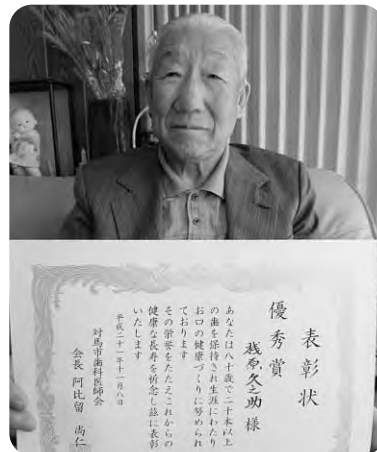 表彰状
優秀賞
桟原久之助 様
あなたは八十歳で二十本以上
の歯を保持され生涯にわたり
お口の健康づくりに努められ
ております
その栄誉をたたえこれからの
健康な長寿を祈念し玆に表彰
いたします
平成二十一年十一月八日
対馬市歯科医師会
会長 阿比留 尚仁